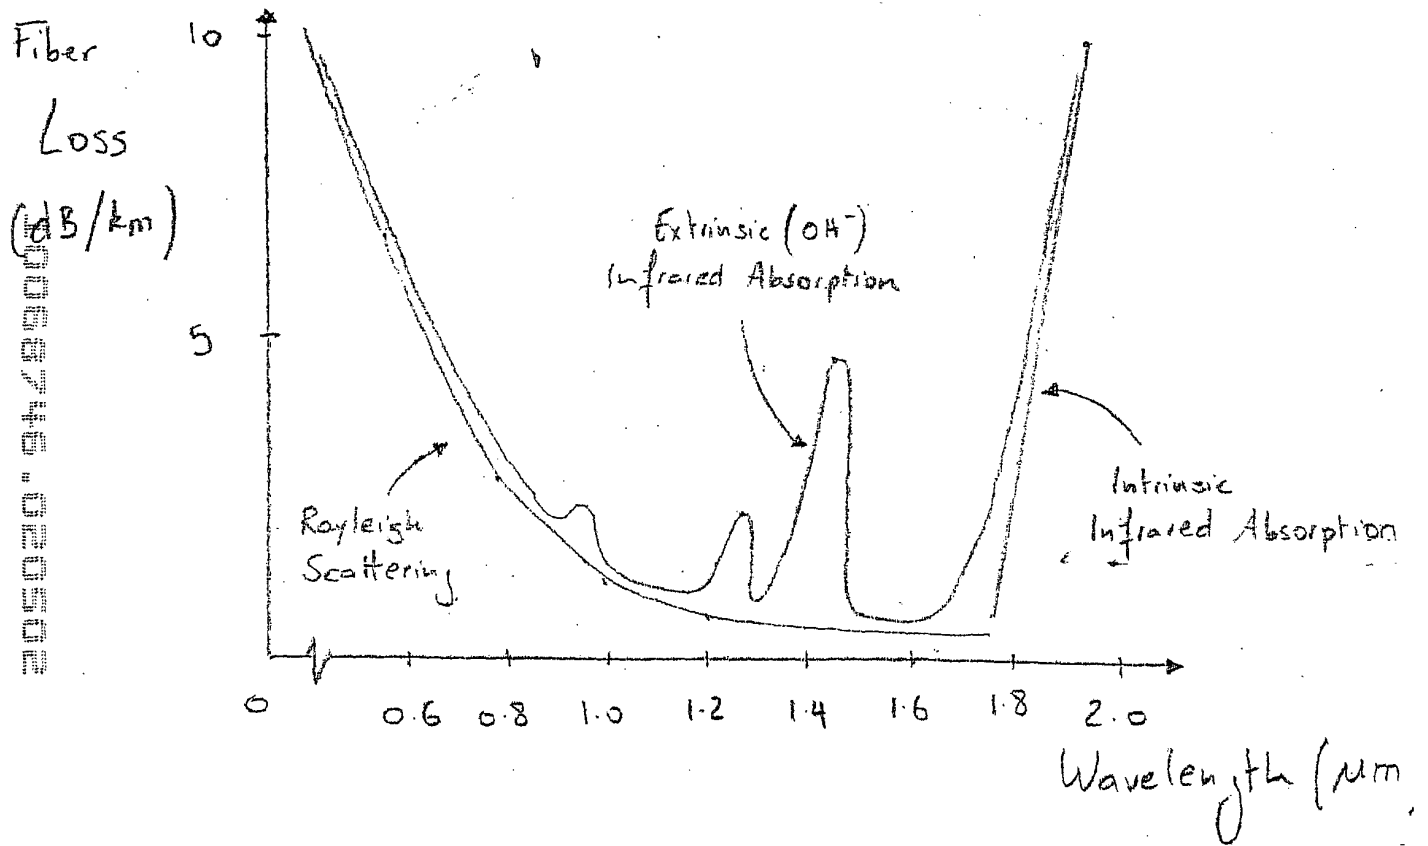 Fiber
Loss
(dB/km)
10
5
Extrinsic (OH⁻)
Infrared Absorption
Rayleigh
Scattering
Intrinsic
Infrared Absorption
0
0.6
0.8
1.0
1.2
1.4
1.6
1.8
2.0
Wavelength (μm